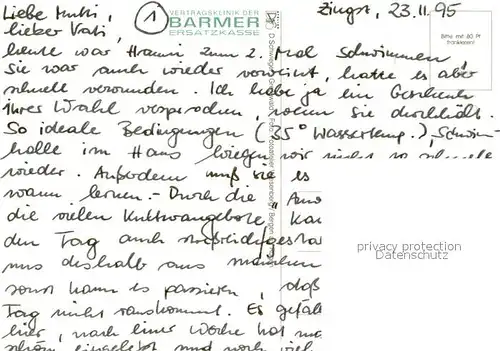 Liebe Mutti,
lieber Vati,
1
VERTRAGSKLINIK DER
BARMER
ERSATZKASSE
Zingst, 23.11.95
Bitte mit 80 Pf
frankieren!
heute war Hanni zum 2. Mal Schwimmen
Sie war auch wieder verwirrt, hatte es aber
schnell verwunden. Ich habe ja ein Geschenk
ihrer Wahl versprochen, wenn sie durchhält.
So ideale Bedingungen (35° Wassertemp.), Schwimm-
halle im Haus kriegen wir nicht so schnell
wieder. Außerdem muß sie es
wann lernen. - Durch die "Anw
die vielen Kulturangebote Kan
den Tag auch
uns deshalb aus manchen
sonst kann es passieren, daß
Tag nicht rauskommt. Es gefäll
hier, nach einer Woche hat ma
schön eingelebt und noch viel
privacy protection
Datenschutz